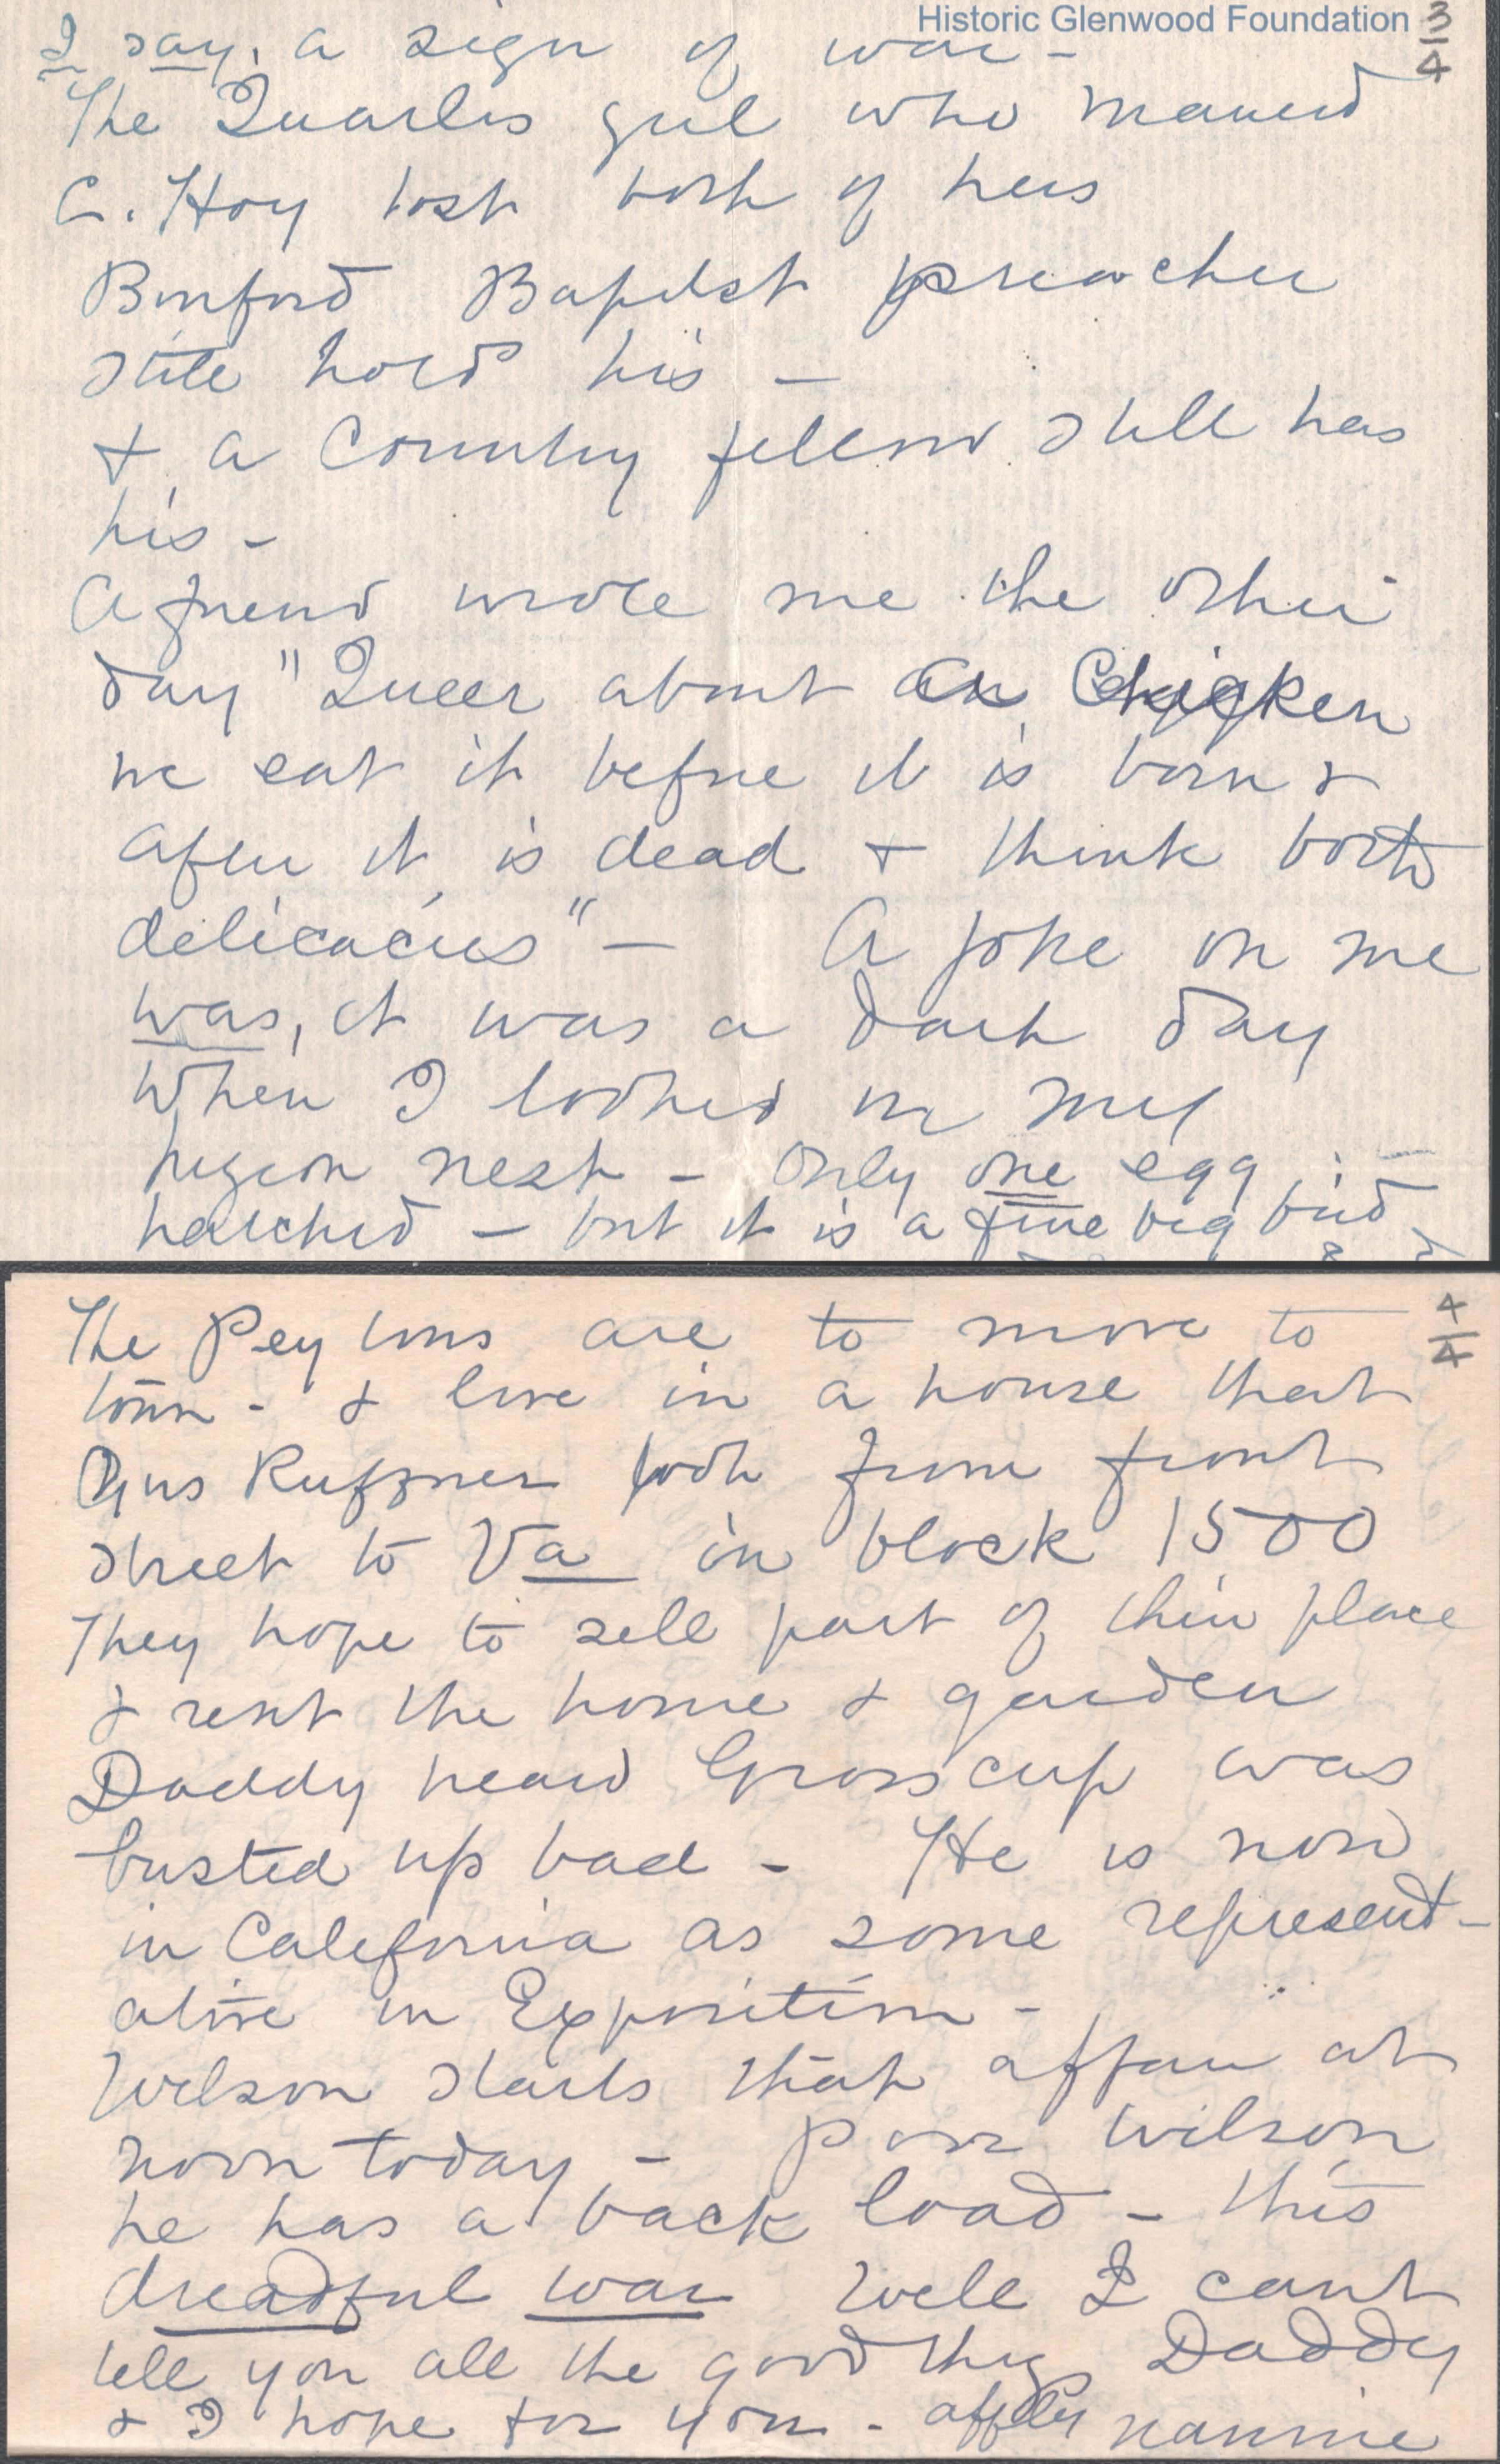 Historic Glenwood Foundation
3/4
I say, a sign of war -
The Quarles girl who married
C. Hoy lost both of hers
Binford Baptist preacher
still hold his -
& a Country fellow still has
his -
A friend wrote me the other
day "Queer about a Chicken
we eat it before it is born &
after it is dead & think both
delicacies" - A joke on me
was, it was a dark day
When I looked in my
pigeon nest - Only one egg
hatched - but it is a fine big bird
4/4
The Peytons are to move to
town - & live in a house that
Gus Ruffner took from front
street to Va in block 1500
They hope to sell part of their place
& rent the home & garden
Daddy heard Grosscup was
busted up bad - He is now
in California as some represent-
ative in Exposition -
Wilson starts that affair at
noon today - Poor Wilson
he has a back load - this
dreadful war Well I cant
tell you all the good things Daddy
& I hope for you - affly Nannie